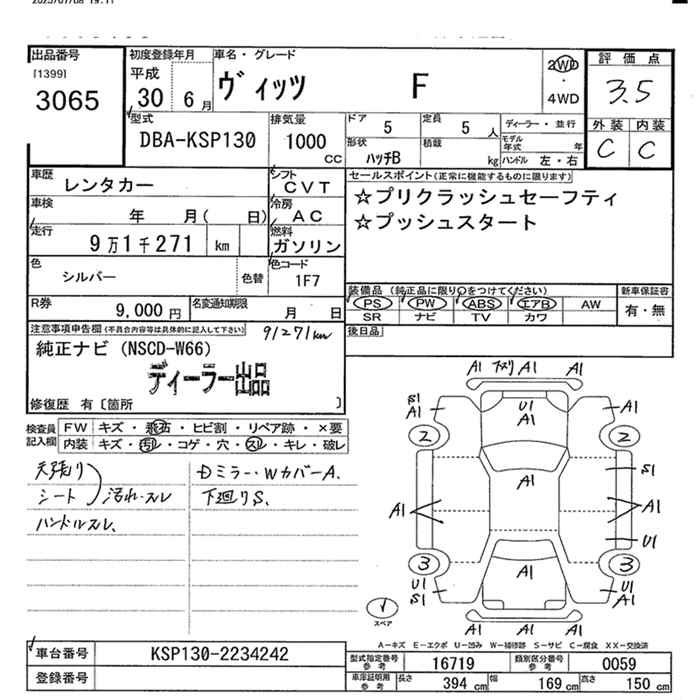 2025/07/08 19:11
出品番号
[1399]
3065
初度登録年月
平成
30 6月
車名・グレード
ヴィッツ F
2WD
・
4WD
評価点
3.5
外装 内装
C C
型式
DBA-KSP130
排気量
1000
CC
ドア
5
定員
5 人
形状
ハッチB
積載
kg
ディーラー・並行
モデル年式 年
ハンドル 左・右
車歴
レンタカー
シフト
CVT
車検
年 月( 日)
冷房
AC
走行
9万1千271 km
燃料
ガソリン
色
シルバー
色替
色コード
1F7
R券
9,000 円
名変通知期限
月 日
セールスポイント(正常に機能するものに限ります)
☆プリクラッシュセーフティ
☆プッシュスタート
装備品(純正品に限り○をつけてください)
PS PW ABS エアB AW
SR ナビ TV カワ
新車保証書
有・無
後日品
注意事項申告欄(不具合内容等は具体的に記入して下さい)
91271km
純正ナビ(NSCD-W66)
ディーラー出品
修復歴 有〔箇所 〕
検査員記入欄
FW キズ・飛石・ヒビ割・リペア跡・×要
内装 キズ・汚レ・コゲ・穴・スレ・キレ・破レ
天張り
シート 汚れ・スレ
ハンドルスレ、
Dミラー・WカバーA.
下廻りS.
A1 下スリ A1 A1
S1
A1
U1
A1
A1
2 2
A1
S1
A1 A1
U1
3 3
A1
U1
S1
U1
A1
A1 A1 A1
スペア
A-キズ E-エクボ U-凹み W-補修跡 S-サビ C-腐食 XX-交換済
車台番号
KSP130-2234242
登録番号
型式指定番号参考
16719
類別区分番号参考
0059
車庫証明用参考
長さ 394 cm
幅 169 cm
高さ 150 cm